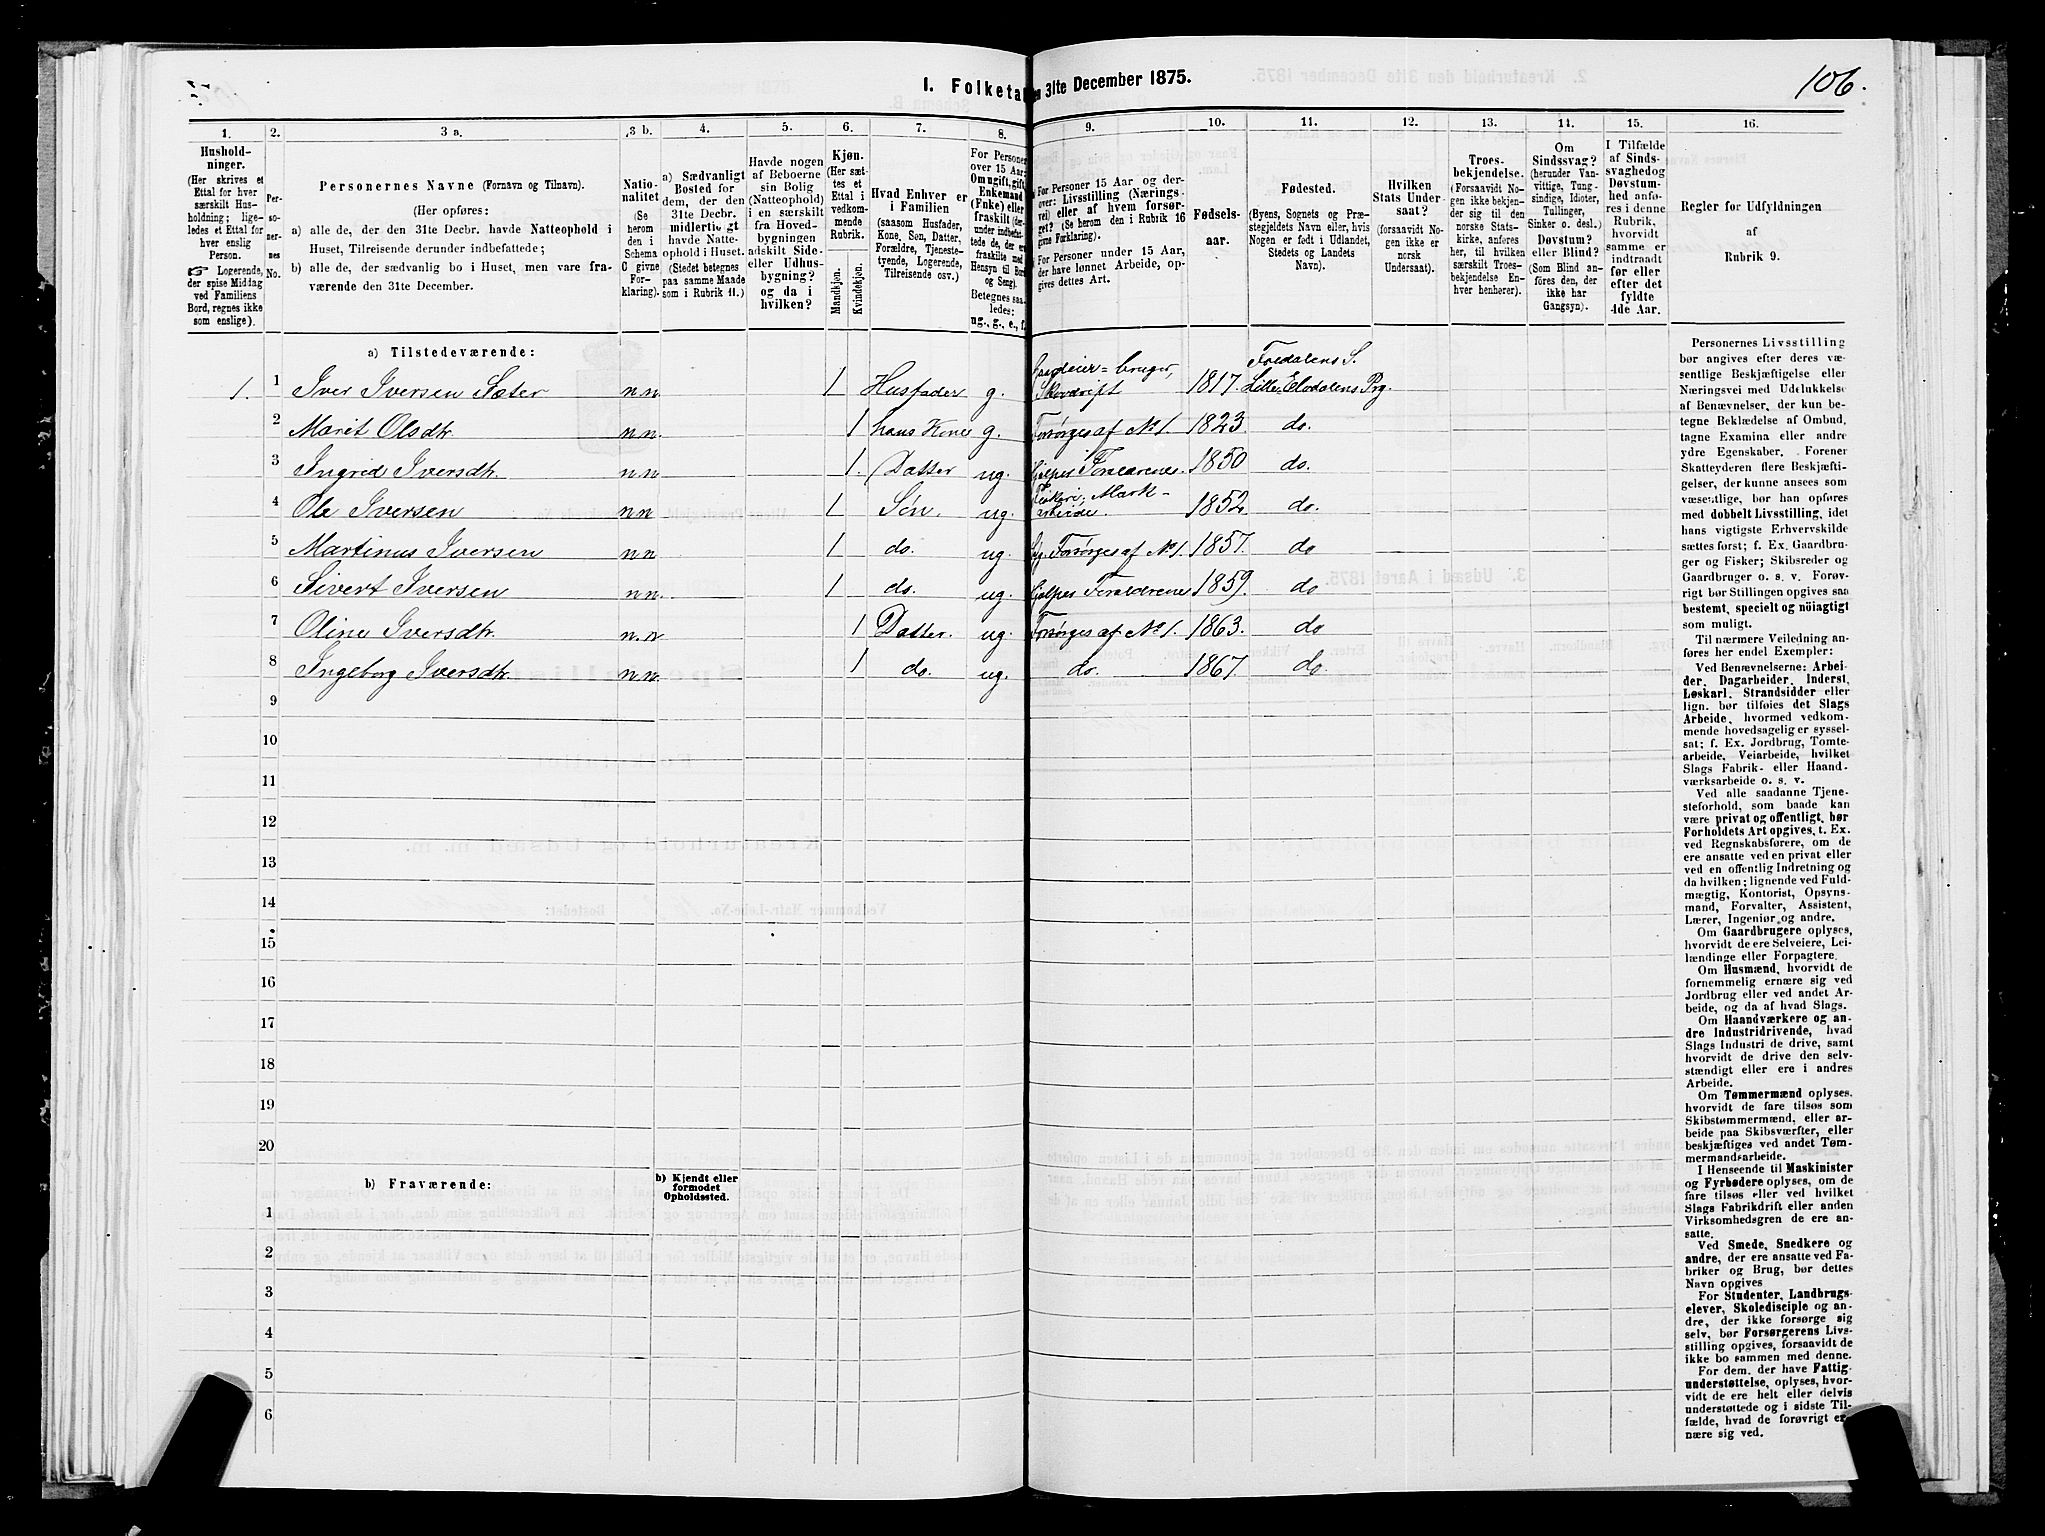 106.
I. Folketa
en 31te December 1875.
1. 2. 3 a. 3 b. 4. 5. 6. 7. 8. 9. 10. 11. 12. 13. 14. 15. 16.
Hushold-
ninger.
(Her skrives et
Ettal for hver
særskilt Hus-
holdning; lige-
ledes et Ettal for
hver enslig
Person.
☞ Logerende,
der spise Middag
ved Familiens
Bord, regnes ikke
som enslige).
Per-
so-
ner-
nes
No.
Personernes Navne (Fornavn og Tilnavn).
(Her opføres:
a) alle de, der den 31te Decbr. havde Natteophold i
Huset, Tilreisende derunder indbefattede;
b) alle de, der sædvanlig bo i Huset, men vare fra-
værende den 31te December.
Natio-
nalitet
(Se
herom
den i
Schema
C givne
For-
klaring).
a) Sædvanligt
Bosted for
dem, der den
31te Decbr.
midlertidigt
havde Natte-
ophold i Huset.
(Stedet betegnes
paa samme Maade
som i Rubrik 11.)
Havde nogen
af Beboerne
sin Bolig
(Natteophold)
i en særskilt
fra Hoved-
bygningen
adskilt Side-
eller Udhus-
bygning?
og da i
hvilken?
Kjøn.
(Her sæt-
tes et
Ettal i
vedkom-
mende
Rubrik.
Mandkjøn.
Kvindekjøn.
Hvad Enhver er
i Familien
(saasom Husfader,
Kone, Søn, Datter,
Forældre, Tjeneste-
tyende, Logerende,
Tilreisende osv.)
For Personer
over 15 Aar:
Om ugift, gift,
Enkemand
(Enke) eller
fraskilt (der-
under indbefat-
tede de, der ere
fraskilte med
Hensyn til Bord
og Seng).
Betegnes saa-
ledes:
ug., g., e., f.
For Personer 15 Aar og der-
over: Livsstilling (Nærings-
vei) eller af hvem forsør-
get? (Se herom den i Rubrik 16
givne Forklaring).
For Personer under 15 Aar,
der have lønnet Arbeide, op-
gives dettes Art.
Fødsels-
aar.
Fødested.
(Byens, Sognets og Præ-
stegjeldets Navn eller, hvis
Nogen er født i Udlandet,
Stedets og Landets
Navn).
Hvilken
Stats Under-
saat?
(forsaavidt No-
gen ikke er
norsk
Undersaat).
Troes-
bekjendelse.
(Forsaavidt No-
gen ikke bekjen-
der sig til den
norske Stats-
kirke, anføres
her, til hvilken
særskilt Troes-
bekjendelse En-
hver henhører).
Om
Sindssvag?
(herunder Van-
vittige, Tung-
sindige, Idioter,
Tullinger,
Sinker o. desl.)
Døvstum?
eller Blind?
(Som Blind an-
føres den, der
ikke har
Gangsyn).
I Tilfælde
af Sinds-
svaghed og
Døvstum-
hed anfø-
res i denne
Rubrik,
hvorvidt
samme er
indtraadt
før eller
efter det
fyldte
4de Aar.
Regler for Udfyldningen
af
Rubrik 9.
a) Tilstedeværende:
1. 1 Iver Iversen Sæter n.n. 1 Husfader g. Gaardeier = bruger, Skovdrift 1817. Foldalens S. Lille Elvdalens Prg.
2 Marit Olsdtr. n.n. 1 hans Kone g. Forsørges af No 1. 1823. do.
3 Ingrid Iversdtr. n.n. 1. Datter ug. Hjelper Forældrene. 1850 do.
4 Ole Iversen n.n. 1 Søn. ug. Mark- arbeide. 1852. do.
5 Martinus Iversen n.n. 1 do. ug. Forsørges af No 1. 1857. do
6 Sivert Iversen n.n. 1 do. ug. Hjelper Forældrene 1859. do
7 Oline Iversdtr. n.n. 1 Datter. ug. Forsørges af No 1. 1863. do
8 Ingeborg Iversdtr. n.n. 1 do. ug. do. 1867. do.
9
10
11
12
13
14
15
16
17
18
19
20
b) Fraværende:
b) Kjendt eller
formodet
Opholdssted.
1
2
3
4
5
6
Personernes Livsstilling
bør angives efter deres væ-
sentlige Beskjæftigelse eller
Næringsvei med Udelukkelse
af Benævnelser, der kun be-
tegne Beklædelse af Ombud,
tagne Examina eller andre
ydre Egenskaber. Forener
Skatteyderen flere Beskjæfti-
gelser, der kunne ansees som
væsentlige, bør han opføres
med dobbelt Livsstilling, idet
hans vigtigste Erhvervskilde
sættes først; f. Ex. Gaardbru-
ger og Fisker; Skibsreder og
Gaardbruger o. s. v. Forøv-
rigt bør Stillingen opgives saa
bestemt, specielt og nöiagtigt
som muligt.
Til nærmere Veiledning an-
føres her endel Exempler:
Ved Benævnelserne: Arbei-
der, Dagarbeider, Inderst,
Løskarl, Strandsidder eller
lign. bør tilføies det Slags
Arbeide, hvormed vedkom-
mende hovedsagelig er syssel-
sat; f. Ex. Jordbrug, Tomte-
arbeide, Veiarbeide, hvilket
Slags Fabrik- eller Haand-
værksarbeide o. s. v.
Ved alle saadanne Tjene-
steforhold, som baade kan
være privat og offentligt, bør
Forholdets Art opgives, t. Ex.
ved Regnskabsførere, om de
ere ansatte ved en privat eller
ved en offentlig Indretning og
da hvilken; lignende ved Fuld-
mægtig, Kontorist, Opsyns-
mand, Forvalter, Assistent,
Lærer, Ingeniør og andre.
Om Gaardbrugere oplyses,
hvorvidt de ere Selveiere, Lei-
lændinge eller Forpagtere.
Om Husmænd, hvorvidt de
fornemmelig ernære sig ved
Jordbrug eller ved andet Ar-
beide, og da af hvad Slags.
Om Haandværkere og an-
dre Industridrivende, hvad
Slags Industri de drive, samt
hvorvidt de drive den selv-
stændigt eller ere i andres
Arbeide.
Om Tømmermænd oplyses,
hvorvidt de fare tilsøs som
Skibstømmermænd, eller ar-
beide paa Skibsværfter, eller
beskjæftiges ved andet Tøm-
mermandsarbeide.
I Henseende til Maskinister
og Fyrbødere oplyses, om de
fare tilsøs eller ved hvilket
Slags Fabrikdrift eller anden
Virksomhedsgren de ere an-
satte.
Ved Smede, Snedkere og
andre, der ere ansatte ved Fa-
briker og Brug, bør dettes
Navn opgives
For Studenter, Landbrugs-
elever, Skoledisciple og an-
dre, der ikke forsørge sig
selv, bør Forsørgerens Livs-
stilling opgives, forsaavidt de
ikke bo sammen med denne.
For dem, der have Fattig-
understøttelse, oplyses, hvor-
vidt de ere helt eller delvis
understøttede og i sidste Til-
fælde, hvad de forøvrigt er-
nære sig ved.